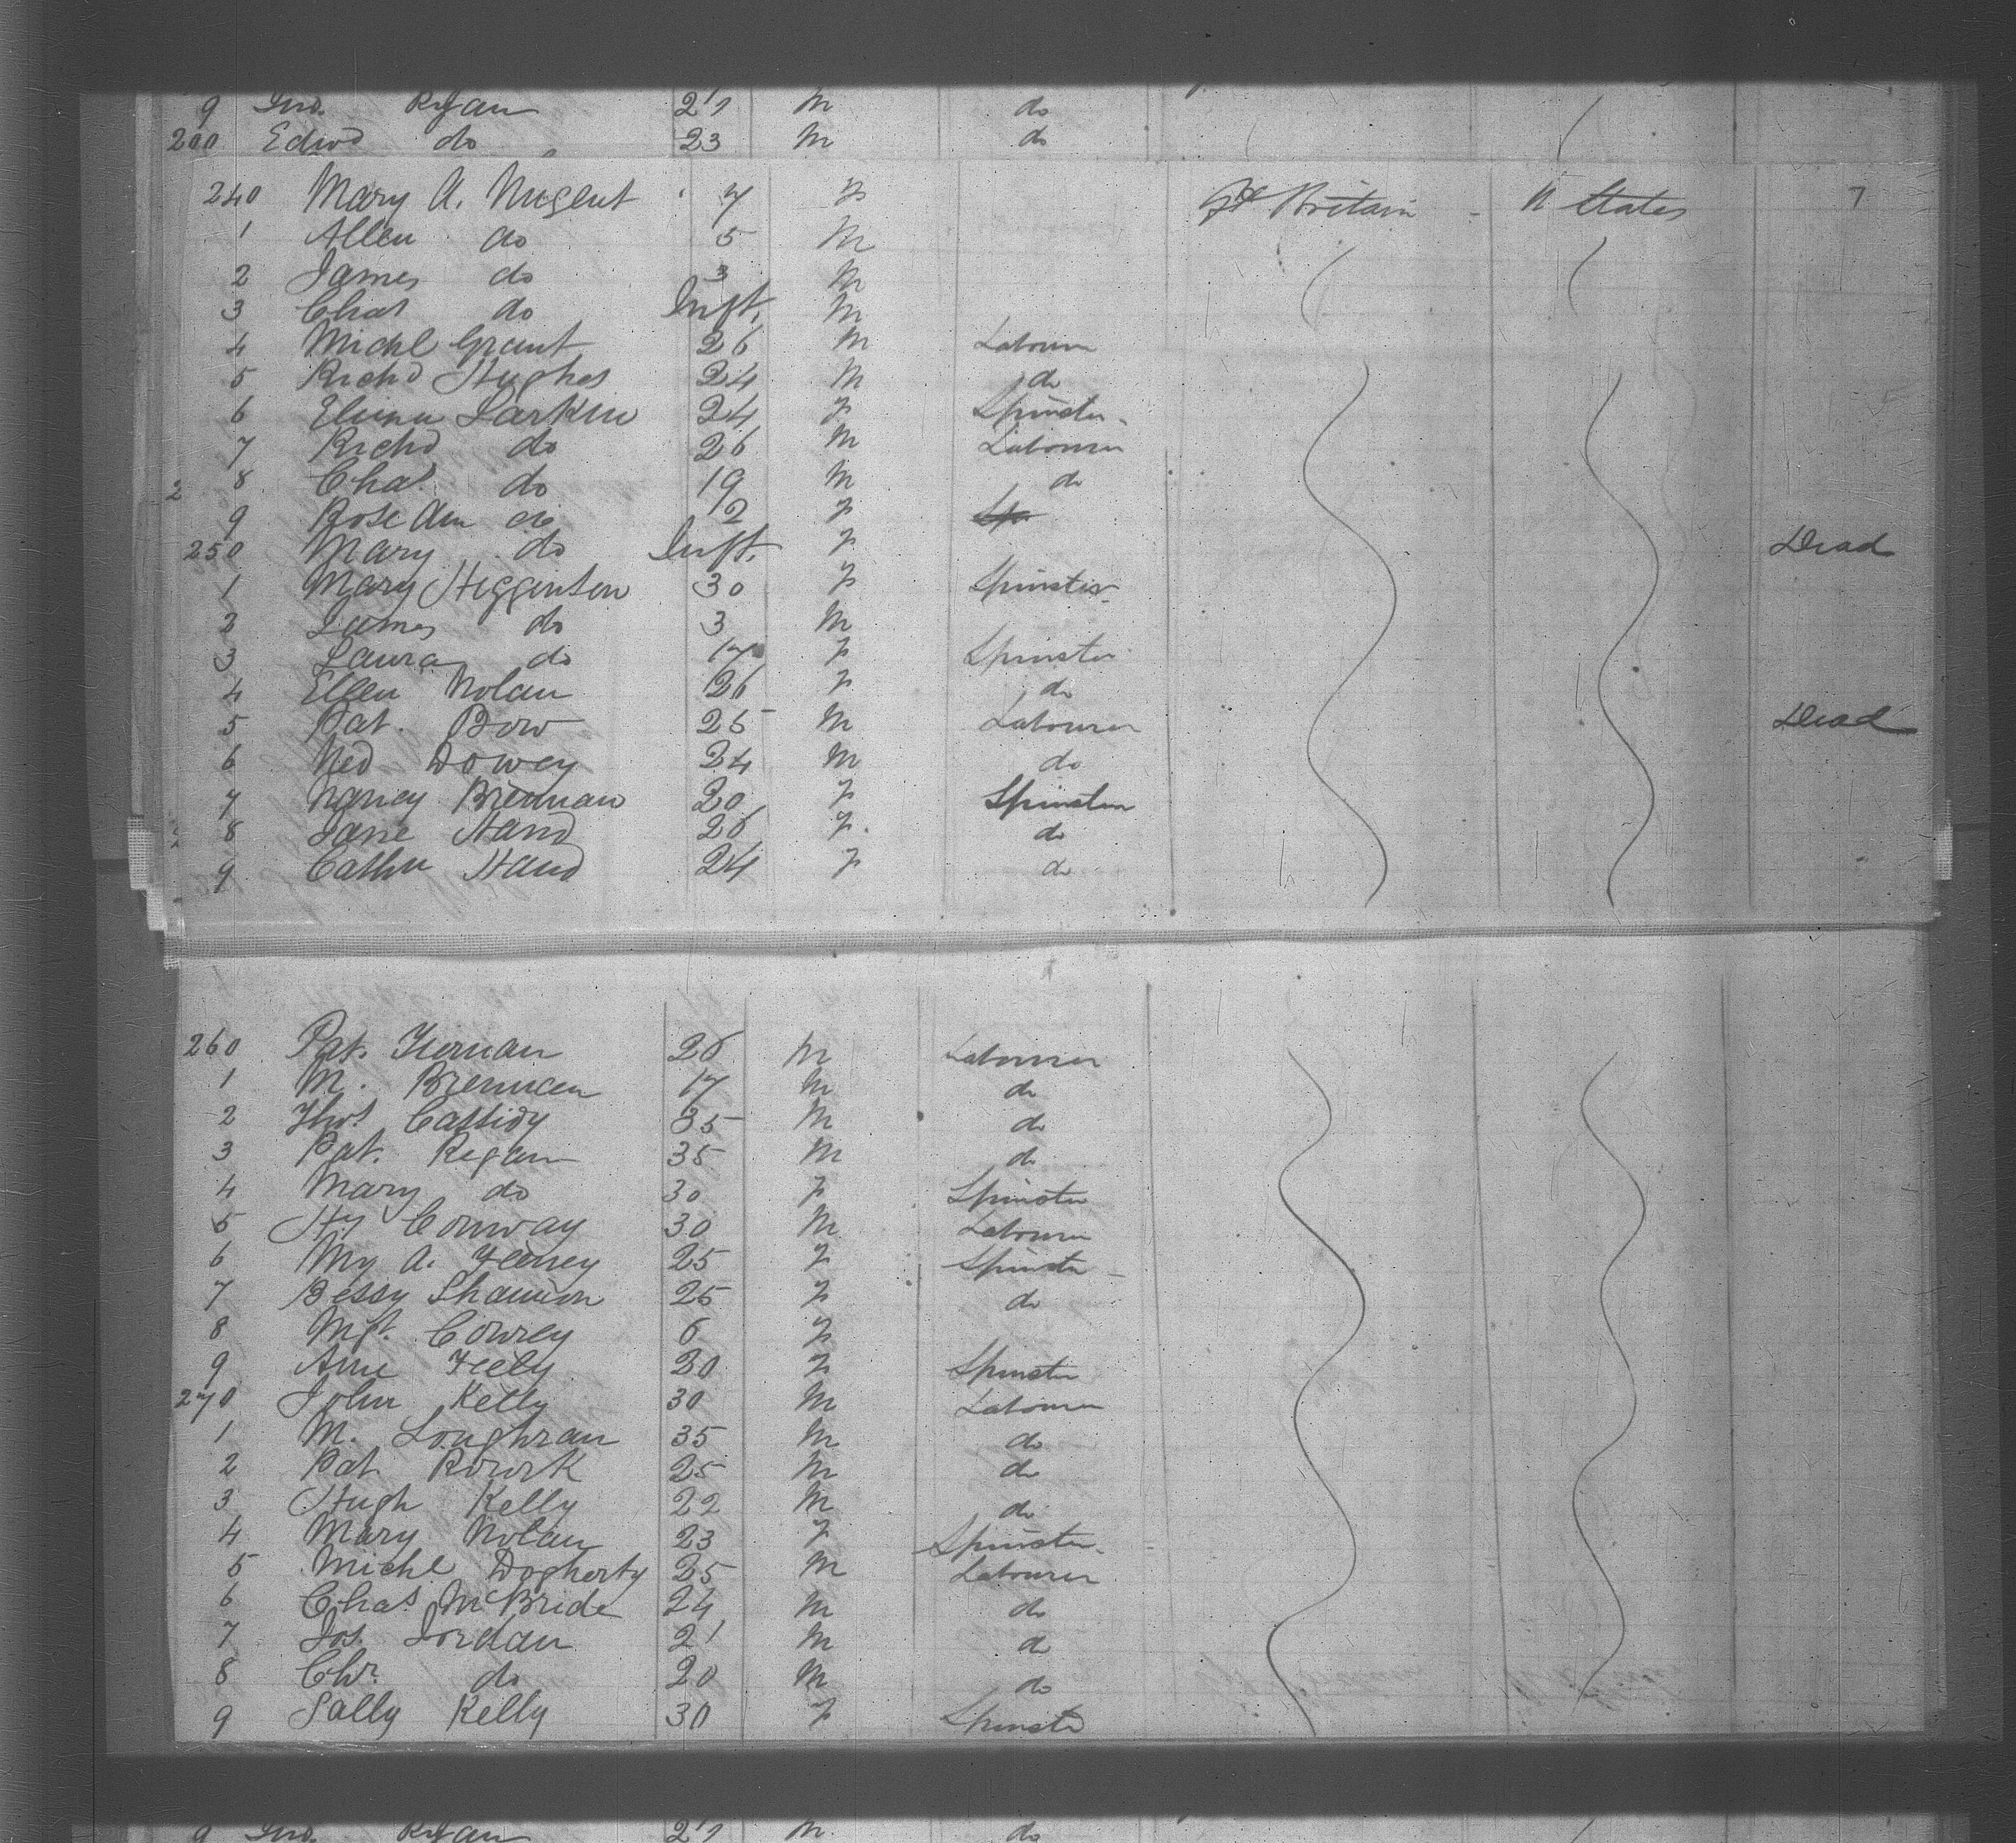 9 Jno. Ryan 21 M do
200 Edwd do 23 M do
240 Mary A. Nugent 7 F Gt Britain U States 7
1 Allen do 5 M
2 James do 3 M
3 Chas do Inft. M
4 Michl Grant 26 M Labourer
5 Richd Hughes 24 M do
6 Larkin 24 F Spinster
7 Richd do 26 M Labourer
8 Chas. do 19 M do
9 Rose Ann do 12 F
250 Mary do Inft. F Dead
1 Mary Higginson 30 F Spinster
2 James do 3 M
3 Laura do 17 F Spinster
4 Ellen Nolan 26 F do
5 Pat. Bow 25 M Labourer Dead
6 Ned Dowey 24 M do
7 Nancy Brennan 20 F Spinster
8 Jane Hand 26 F. do
9 Cathn Hand 24 F do
260 Pat. 26 M Labourer
1 M. Brennan 17 M do
2 Thos Cassidy 35 M do
3 Pat. Regan 35 M do
4 Mary do 30 F Spinster
5 Hy Conway 30 M Labourer
6 My A. Feeney 25 F Spinster
7 Bessy Shannon 25 F do
8 Mgt. Cowrey 6 F
9 Anne Feely 20 F Spinster
270 John Kelly 30 M Labourer
1 M. Loughran 35 M do
2 Pat Rowrk 25 M do
3 Hugh Kelly 22 M do
4 Mary Nolan 23 F Spinster
5 Michl Dogherty 25 M Labourer
6 Chas. McBride 24 M do
7 Jos. Jordan 21 M do
8 Chr. do 20 M do
9 Sally Kelly 30 F Spinster
9 Jno. Ryan 21 M do